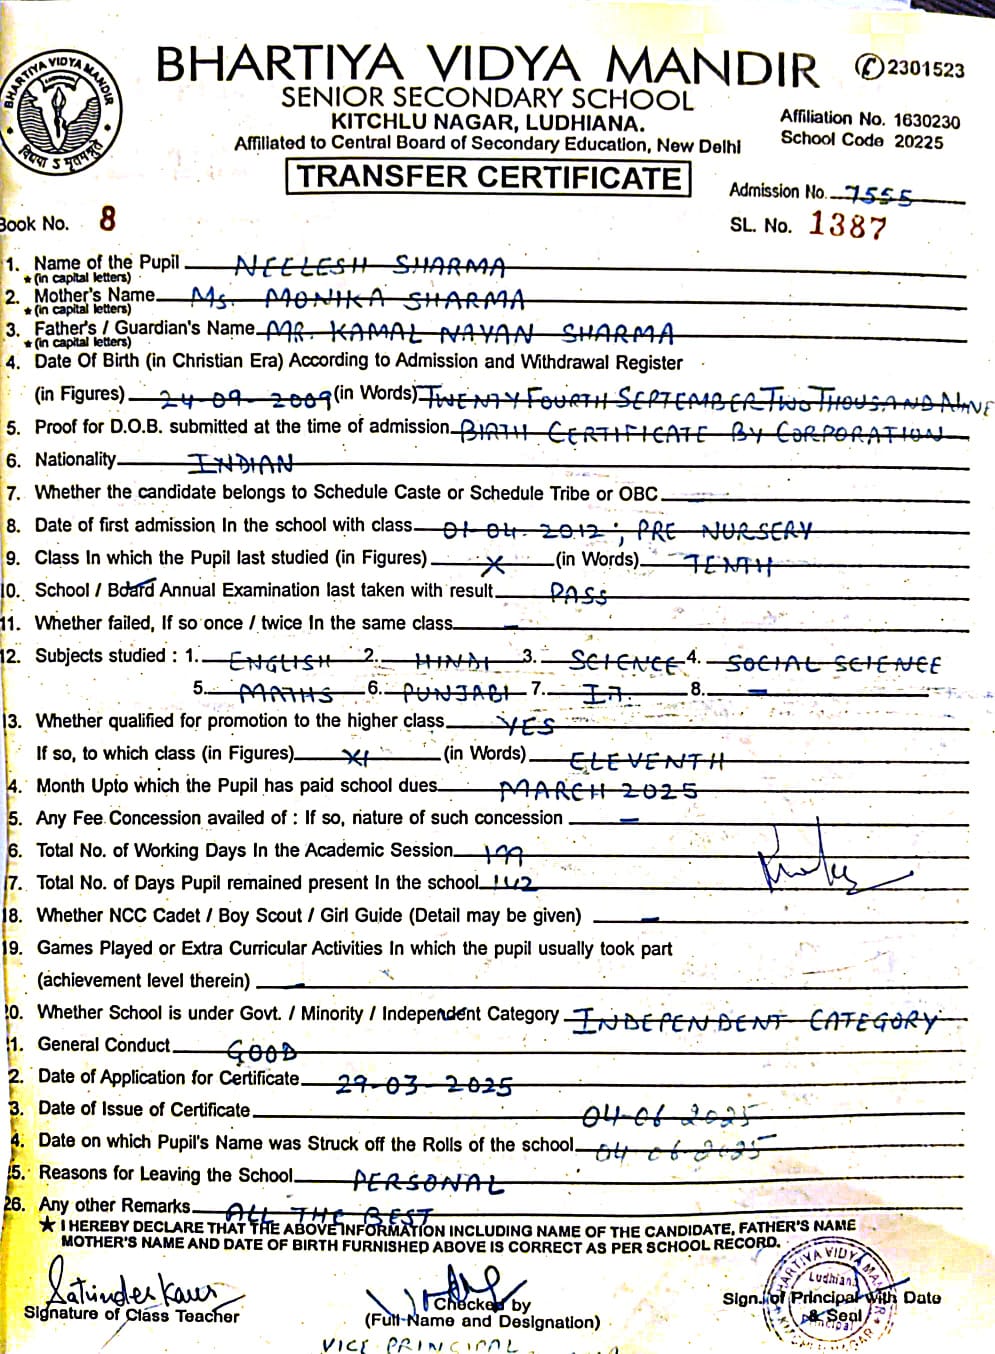 BHARTIYA VIDYA MANDIR
BHARTIYA VIDYA MANDIR ✆2301523
SENIOR SECONDARY SCHOOL
KITCHLU NAGAR, LUDHIANA.
Affiliation No. 1630230
Affiliated to Central Board of Secondary Education, New Delhi
School Code 20225
TRANSFER CERTIFICATE
Admission No. 7555
Book No. 8
SL. No. 1387
1. Name of the Pupil NEELESH SHARMA
★(in capital letters)
2. Mother's Name Ms. MONIKA SHARMA
★(in capital letters)
3. Father's / Guardian's Name MR. KAMAL NAYAN SHARMA
★(in capital letters)
4. Date Of Birth (in Christian Era) According to Admission and Withdrawal Register
(in Figures) 24-09-2009 (in Words) TWENTY FOURTH SEPTEMBER TWO THOUSAND NINE
5. Proof for D.O.B. submitted at the time of admission BIRTH CERTIFICATE BY CORPORATION
6. Nationality INDIAN
7. Whether the candidate belongs to Schedule Caste or Schedule Tribe or OBC
8. Date of first admission In the school with class 01-04-2012; PRE NURSERY
9. Class In which the Pupil last studied (in Figures) X (in Words) TENTH
10. School / Board Annual Examination last taken with result PASS
11. Whether failed, If so once / twice In the same class –
12. Subjects studied : 1. ENGLISH 2. HINDI 3. SCIENCE 4. SOCIAL SCIENCE
5. MATHS 6. PUNJABI 7. I.T. 8. –
13. Whether qualified for promotion to the higher class YES
If so, to which class (in Figures) XI (in Words) ELEVENTH
4. Month Upto which the Pupil has paid school dues MARCH 2025
5. Any Fee Concession availed of : If so, nature of such concession –
6. Total No. of Working Days In the Academic Session 199
7. Total No. of Days Pupil remained present In the school 142
18. Whether NCC Cadet / Boy Scout / Girl Guide (Detail may be given) –
19. Games Played or Extra Curricular Activities In which the pupil usually took part
(achievement level therein) –
20. Whether School is under Govt. / Minority / Independent Category INDEPENDENT CATEGORY
1. General Conduct GOOD
2. Date of Application for Certificate 29-03-2025
3. Date of Issue of Certificate 04-06-2025
4. Date on which Pupil's Name was Struck off the Rolls of the school 04-06-2025
5. Reasons for Leaving the School PERSONAL
26. Any other Remarks ALL THE BEST
★ I HEREBY DECLARE THAT THE ABOVE INFORMATION INCLUDING NAME OF THE CANDIDATE, FATHER'S NAME
MOTHER'S NAME AND DATE OF BIRTH FURNISHED ABOVE IS CORRECT AS PER SCHOOL RECORD.
Satinder Kaur
Signature of Class Teacher
Checked by
(Full-Name and Designation)
VICE PRINCIPAL
Sign. of Principal With Date
& Seal
Ludhiana
Principal